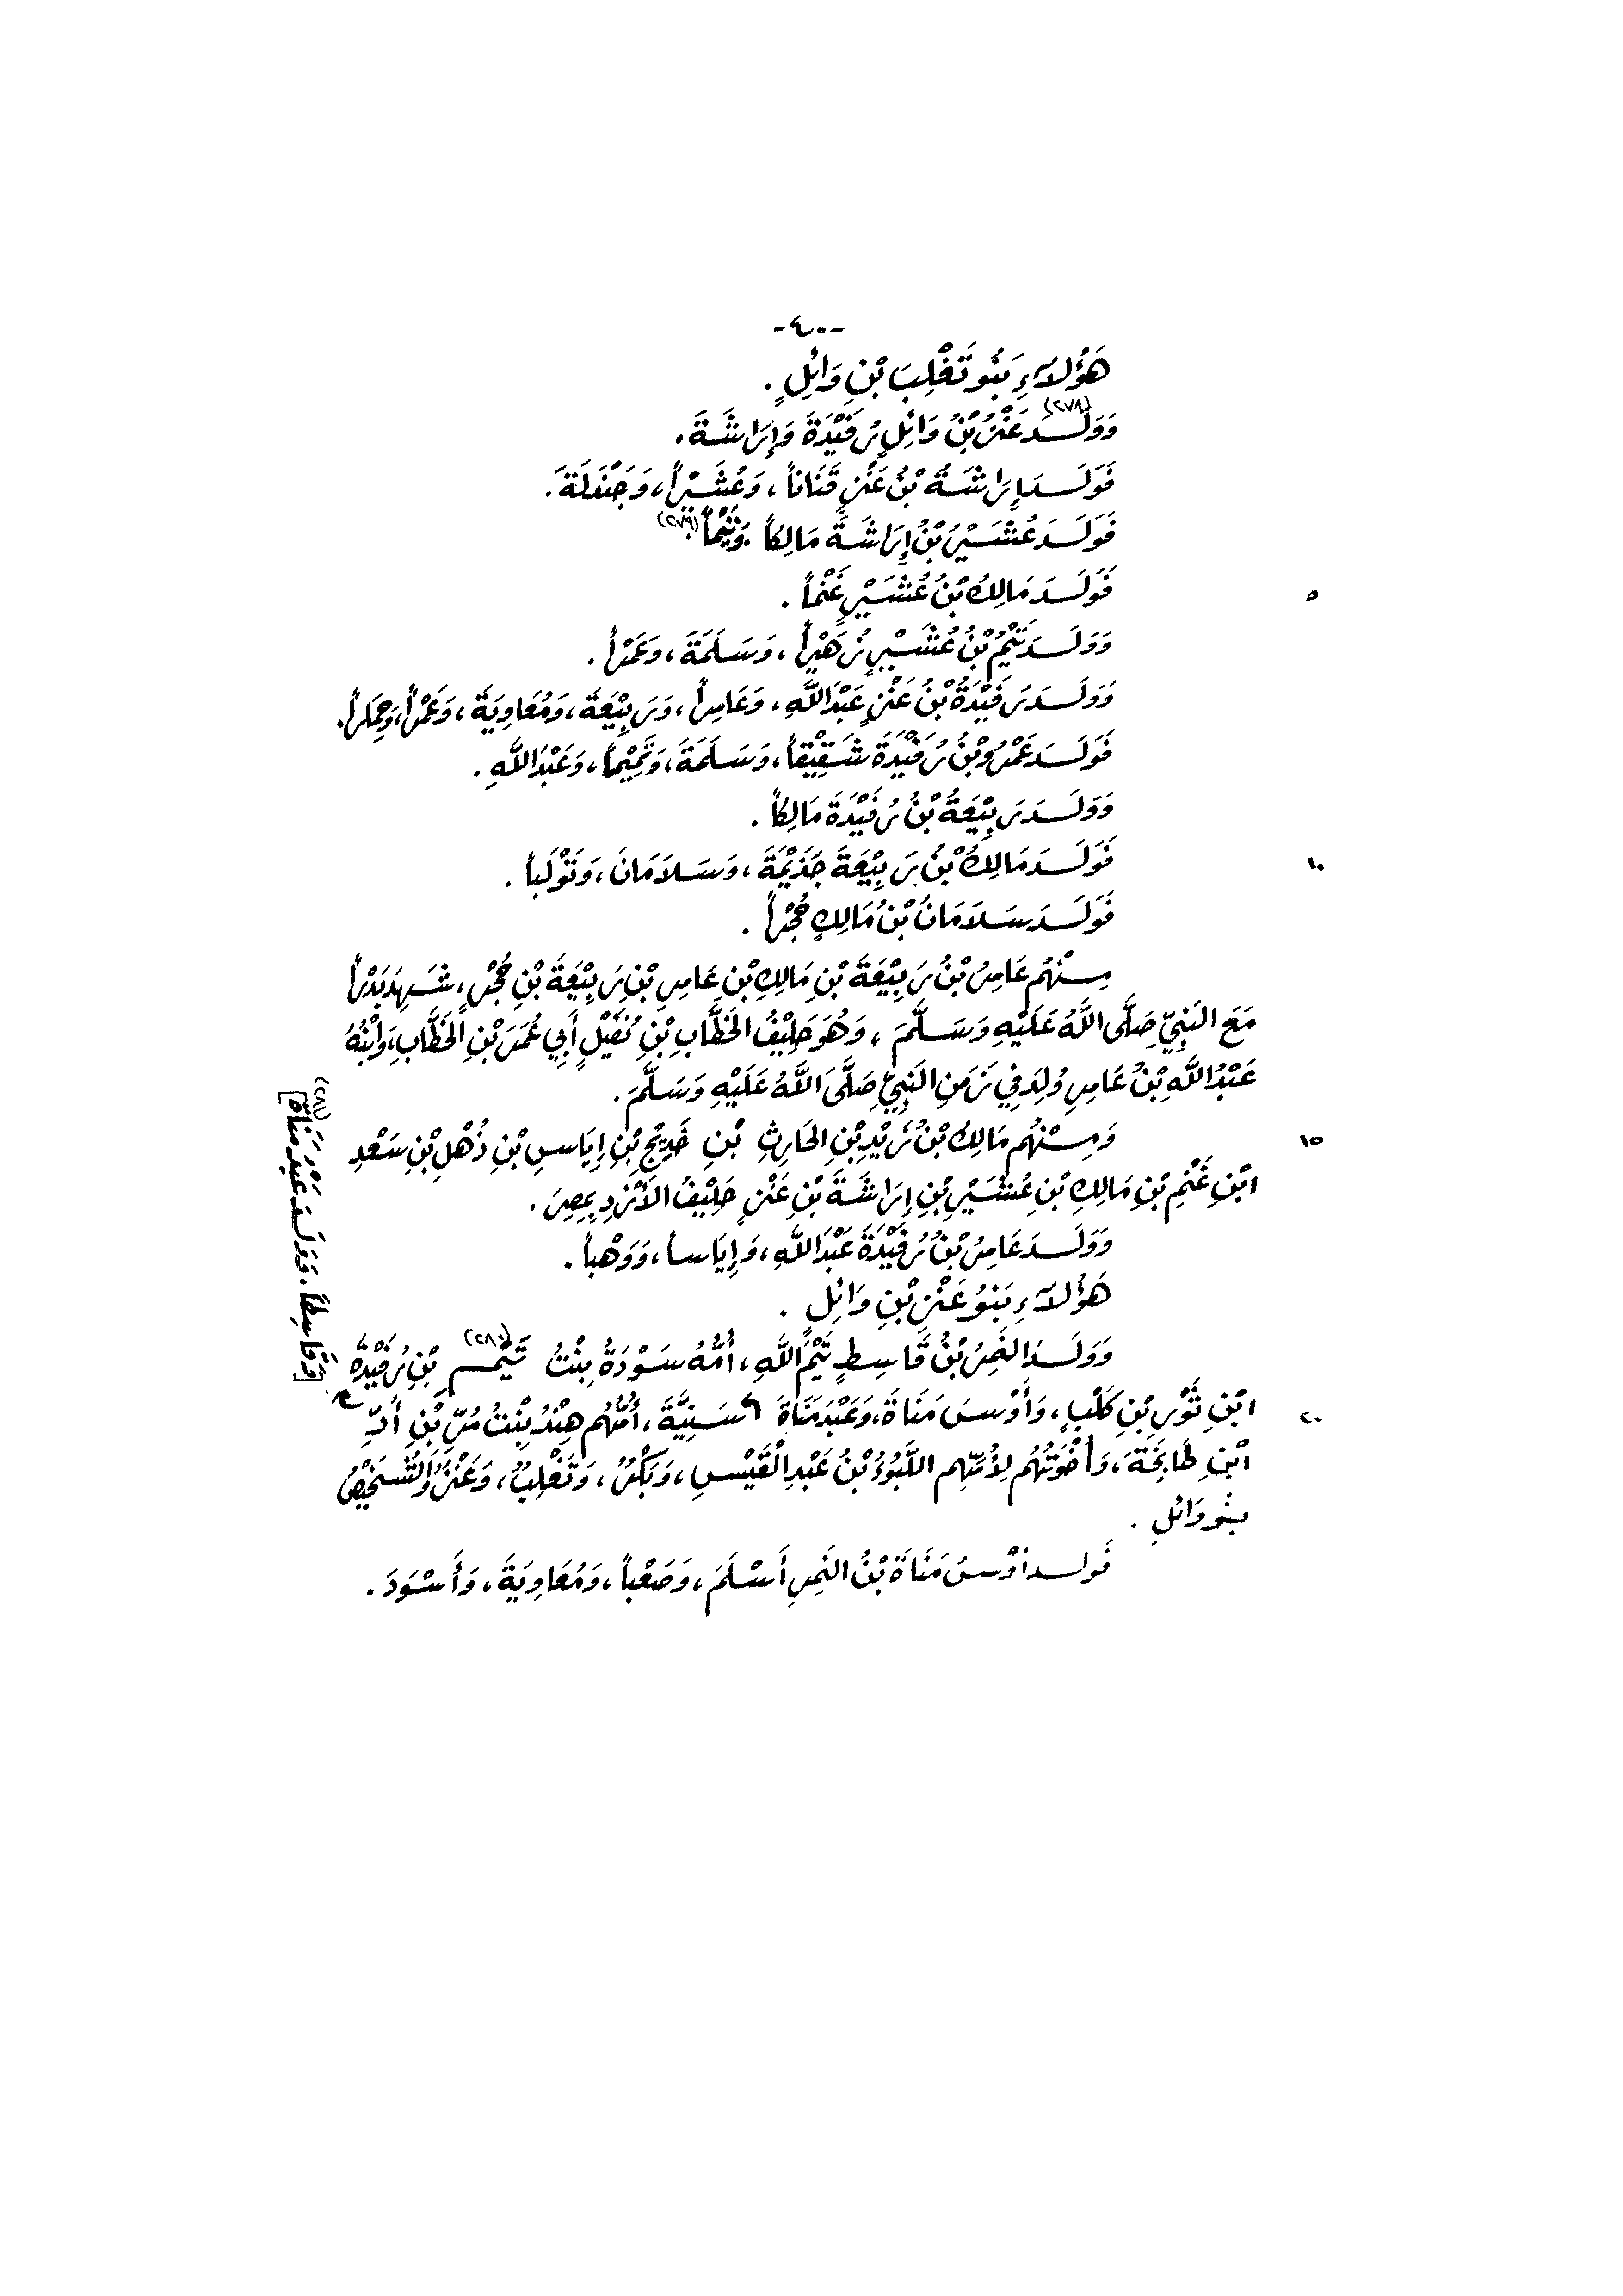 -٤٠٠-
هَؤُلَاءِ بَنُو تَغْلِبَ بْنِ وَائِلٍ .
وَوَلَدَ (٢٧٨) عَنْزُ بْنُ وَائِلٍ رُفَيْدَةَ وَإِرَاشَةَ .
فَوَلَدَ إِرَاشَةُ بْنُ عَنْزٍ قَنَاناً ، وَعُشَيْراً ، وَجَنْدَلَةَ .
فَوَلَدَ عُشَيْرُ بْنُ إِرَاشَةَ مَالِكاً ، وَتَيْماً (٢٧٩) .
٥ فَوَلَدَ مَالِكُ بْنُ عُشَيْرٍ غَنْماً .
وَوَلَدَ تَيْمُ بْنُ عُشَيْرٍ زُهَيْراً ، وَسَلَمَةَ ، وَعَمْراً .
وَوَلَدَ رُفَيْدَةُ بْنُ عَنْزٍ عَبْدَ اللَّهِ ، وَعَامِراً ، وَرَبِيْعَةَ ، وَمُعَاوِيَةَ ، وَعَمْراً ، وَحِمَاراً .
فَوَلَدَ عَمْرُو بْنُ رُفَيْدَةَ شَقِيْقاً ، وَسَلَمَةَ ، وَتَمِيْماً ، وَعَبْدَ اللَّهِ .
وَوَلَدَ رَبِيْعَةُ بْنُ رُفَيْدَةَ مَالِكاً .
١٠ فَوَلَدَ مَالِكُ بْنُ رَبِيْعَةَ جَذِيْمَةَ ، وَسَلَامَانَ ، وَتَوْلَباً .
فَوَلَدَ سَلَامَانُ بْنُ مَالِكٍ حُجْراً .
مِنْهُم عَامِرُ بْنُ رَبِيْعَةَ بْنِ مَالِكِ بْنِ عَامِرِ بْنِ رَبِيْعَةَ بْنِ حُجْرٍ ، شَهِدَ بَدْراً
مَعَ النَّبِيِّ صَلَّى اللَّهُ عَلَيْهِ وَسَلَّمَ ، وَهُوَ حَلِيْفُ الخَطَّابِ بْنِ نُفَيْلٍ أَبِي عُمَرَ بْنِ الخَطَّابِ ، وَابْنُهُ
عَبْدُ اللَّهِ بْنُ عَامِرٍ وُلِدَ فِي زَمَنِ النَّبِيِّ صَلَّى اللَّهُ عَلَيْهِ وَسَلَّمَ .
١٥ وَمِنْهُم مَالِكُ بْنُ زَيْدِ بْنِ الحَارِثِ بْنِ خَدِيْجِ بْنِ إِيَاسِ بْنِ ذُهْلِ بْنِ سَعْدِ
ابْنِ غَنْمِ بْنِ مَالِكِ بْنِ عُشَيْرِ بْنِ إِرَاشَةَ بْنِ عَنْزٍ حَلِيْفُ الأَزْدِ بِمِصْرَ .
وَوَلَدَ عَامِرُ بْنُ رُفَيْدَةَ عَبْدَ اللَّهِ ، وَإِيَاساً ، وَوَهْباً .
هَؤُلَاءِ بَنُو عَنْزِ بْنِ وَائِلٍ .
وَوَلَدَ النَّمِرُ بْنُ قَاسِطٍ تَيْمَ اللَّهِ ، أُمُّهُ سَوْدَةُ بِنْتُ تَيْمِ (٢٨٠) بْنِ رُفَيْدَةَ
٢٠ ابْنِ ثَوْرِ بْنِ كَلْبٍ ، وَأَوْسَ مَنَاةَ ، وَعَبْدَ مَنَاةَ سَنِيَّةَ ، أُمُّهُم هِنْدُ بِنْتُ مُرِّ بْنِ أُدِّ
ابْنِ طَابِخَةَ ، وَأُخْوَتُهُم لِأُمِّهِم اللَّبُوءُ بْنُ عَبْدِ الْقَيْسِ ، وَبَكْرٌ ، وَتَغْلِبُ ، وَعَنْزٌ وَالشَّخَيْصُ
بَنُو وَائِلٍ .
فَوَلَدَ أَوْسُ مَنَاةَ بْنُ النَّمِرِ أَسْلَمَ ، وَصَعْباً ، وَمُعَاوِيَةَ ، وَأَسْوَدَ .
[وَقَاسِطاً . وَوَلَدَ عَبْدُ مَنَاةَ] (٢٨١)